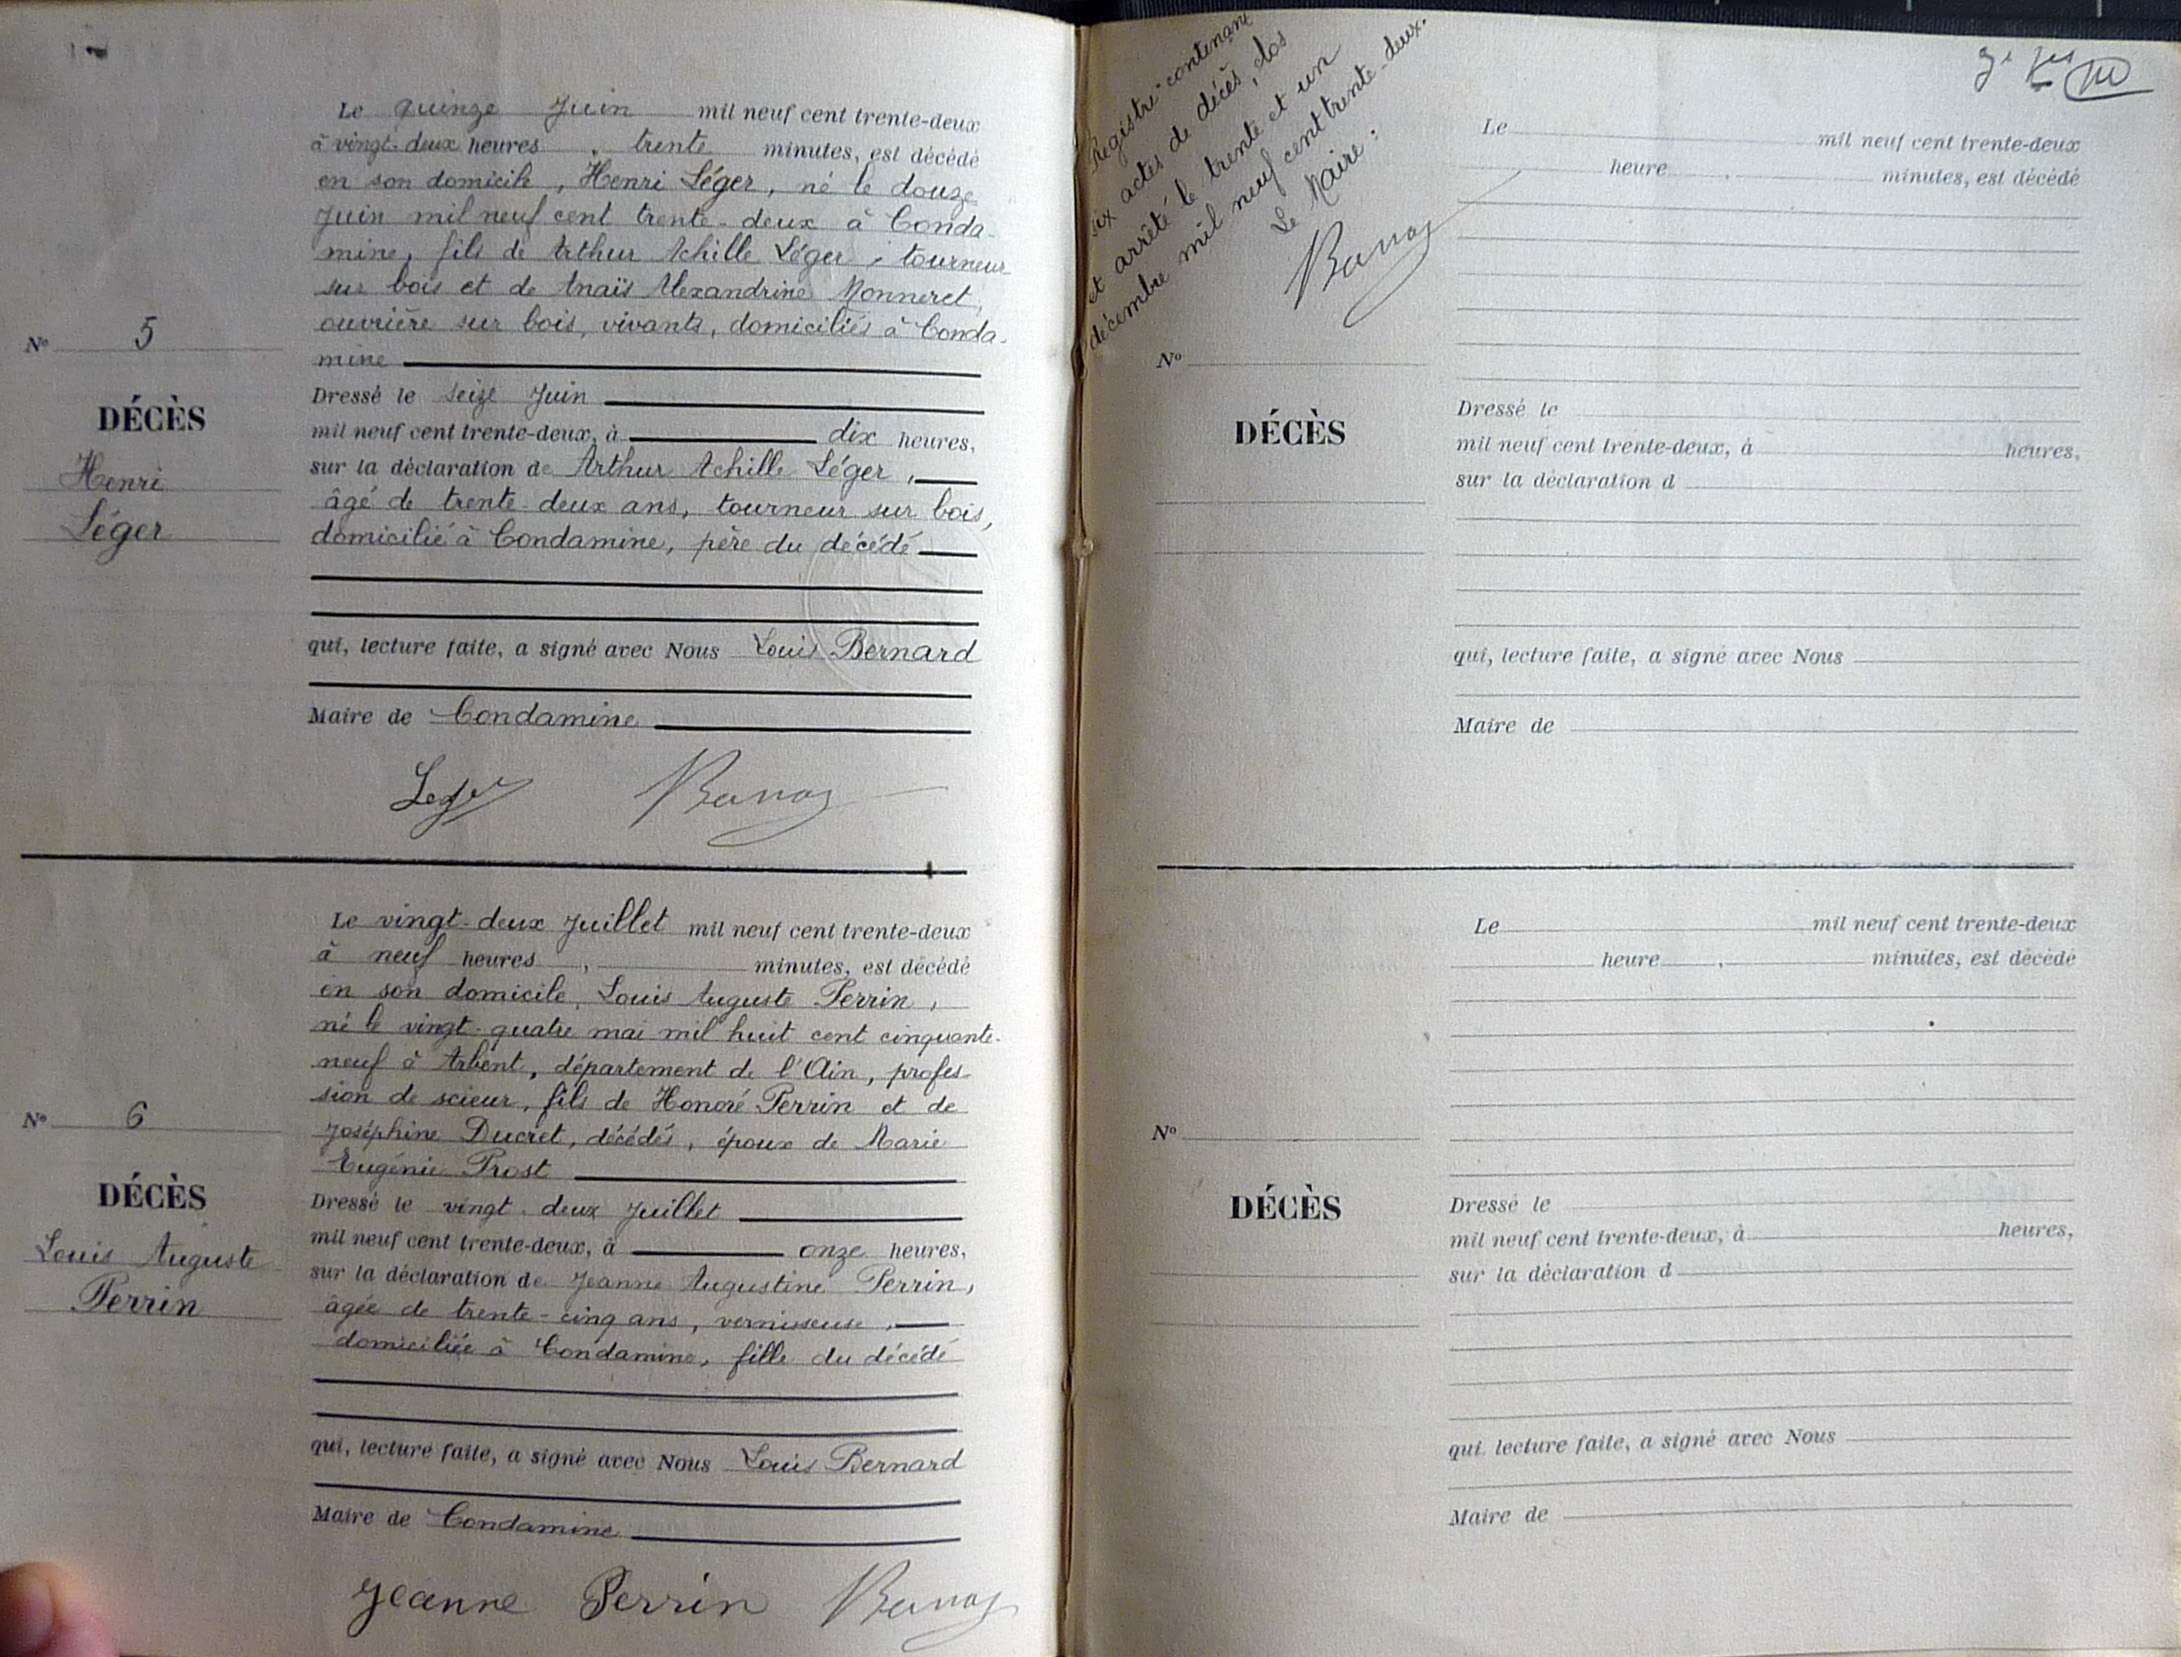 Le quinze Juin mil neuf cent trente-deux
à vingt-deux heures, trente minutes, est décédé
en son domicile, Henri Léger, né le douze
Juin mil neuf cent trente-deux à Conda-
mine, fils de Arthur Achille Léger, tourneur
sur bois et de Anaïs Alexandrine Monneret,
ouvrière sur bois, vivants, domiciliés à Conda-
mine
Nº 5
DÉCÈS
Henri
Léger
Dressé le seize Juin
mil neuf cent trente-deux, à dix heures,
sur la déclaration de Arthur Achille Léger,
âgé de trente-deux ans, tourneur sur bois,
domicilié à Condamine, père du décédé
qui, lecture faite, a signé avec Nous Louis Bernard
Maire de Condamine
Leger
Le vingt-deux Juillet mil neuf cent trente-deux
à neuf heures, minutes, est décédé
en son domicile, Louis Auguste Perrin,
né le vingt-quatre mai mil huit cent cinquante-
neuf à Arbent, département de l'Ain, profes-
sion de scieur, fils de Honoré Perrin et de
Joséphine Ducret, décédés, époux de Marie
Eugénie Prost
Nº 6
DÉCÈS
Louis Auguste
Perrin
Dressé le vingt-deux Juillet
mil neuf cent trente-deux, à onze heures,
sur la déclaration de Jeanne Augustine Perrin,
âgée de trente-cinq ans, vernisseuse,
domiciliée à Condamine, fille du décédé
qui, lecture faite, a signé avec Nous Louis Bernard
Maire de Condamine
Jeanne Perrin
Registre contenant
six actes de décès, clos
et arrêté le trente et un
décembre mil neuf cent trente-deux.
Le Maire:
Le mil neuf cent trente-deux
heure, minutes, est décédé
Nº
DÉCÈS
Dressé le
mil neuf cent trente-deux, à heures,
sur la déclaration d
qui, lecture faite, a signé avec Nous
Maire de
Le mil neuf cent trente-deux
heure, minutes, est décédé
Nº
DÉCÈS
Dressé le
mil neuf cent trente-deux, à heures,
sur la déclaration d
qui, lecture faite, a signé avec Nous
Maire de